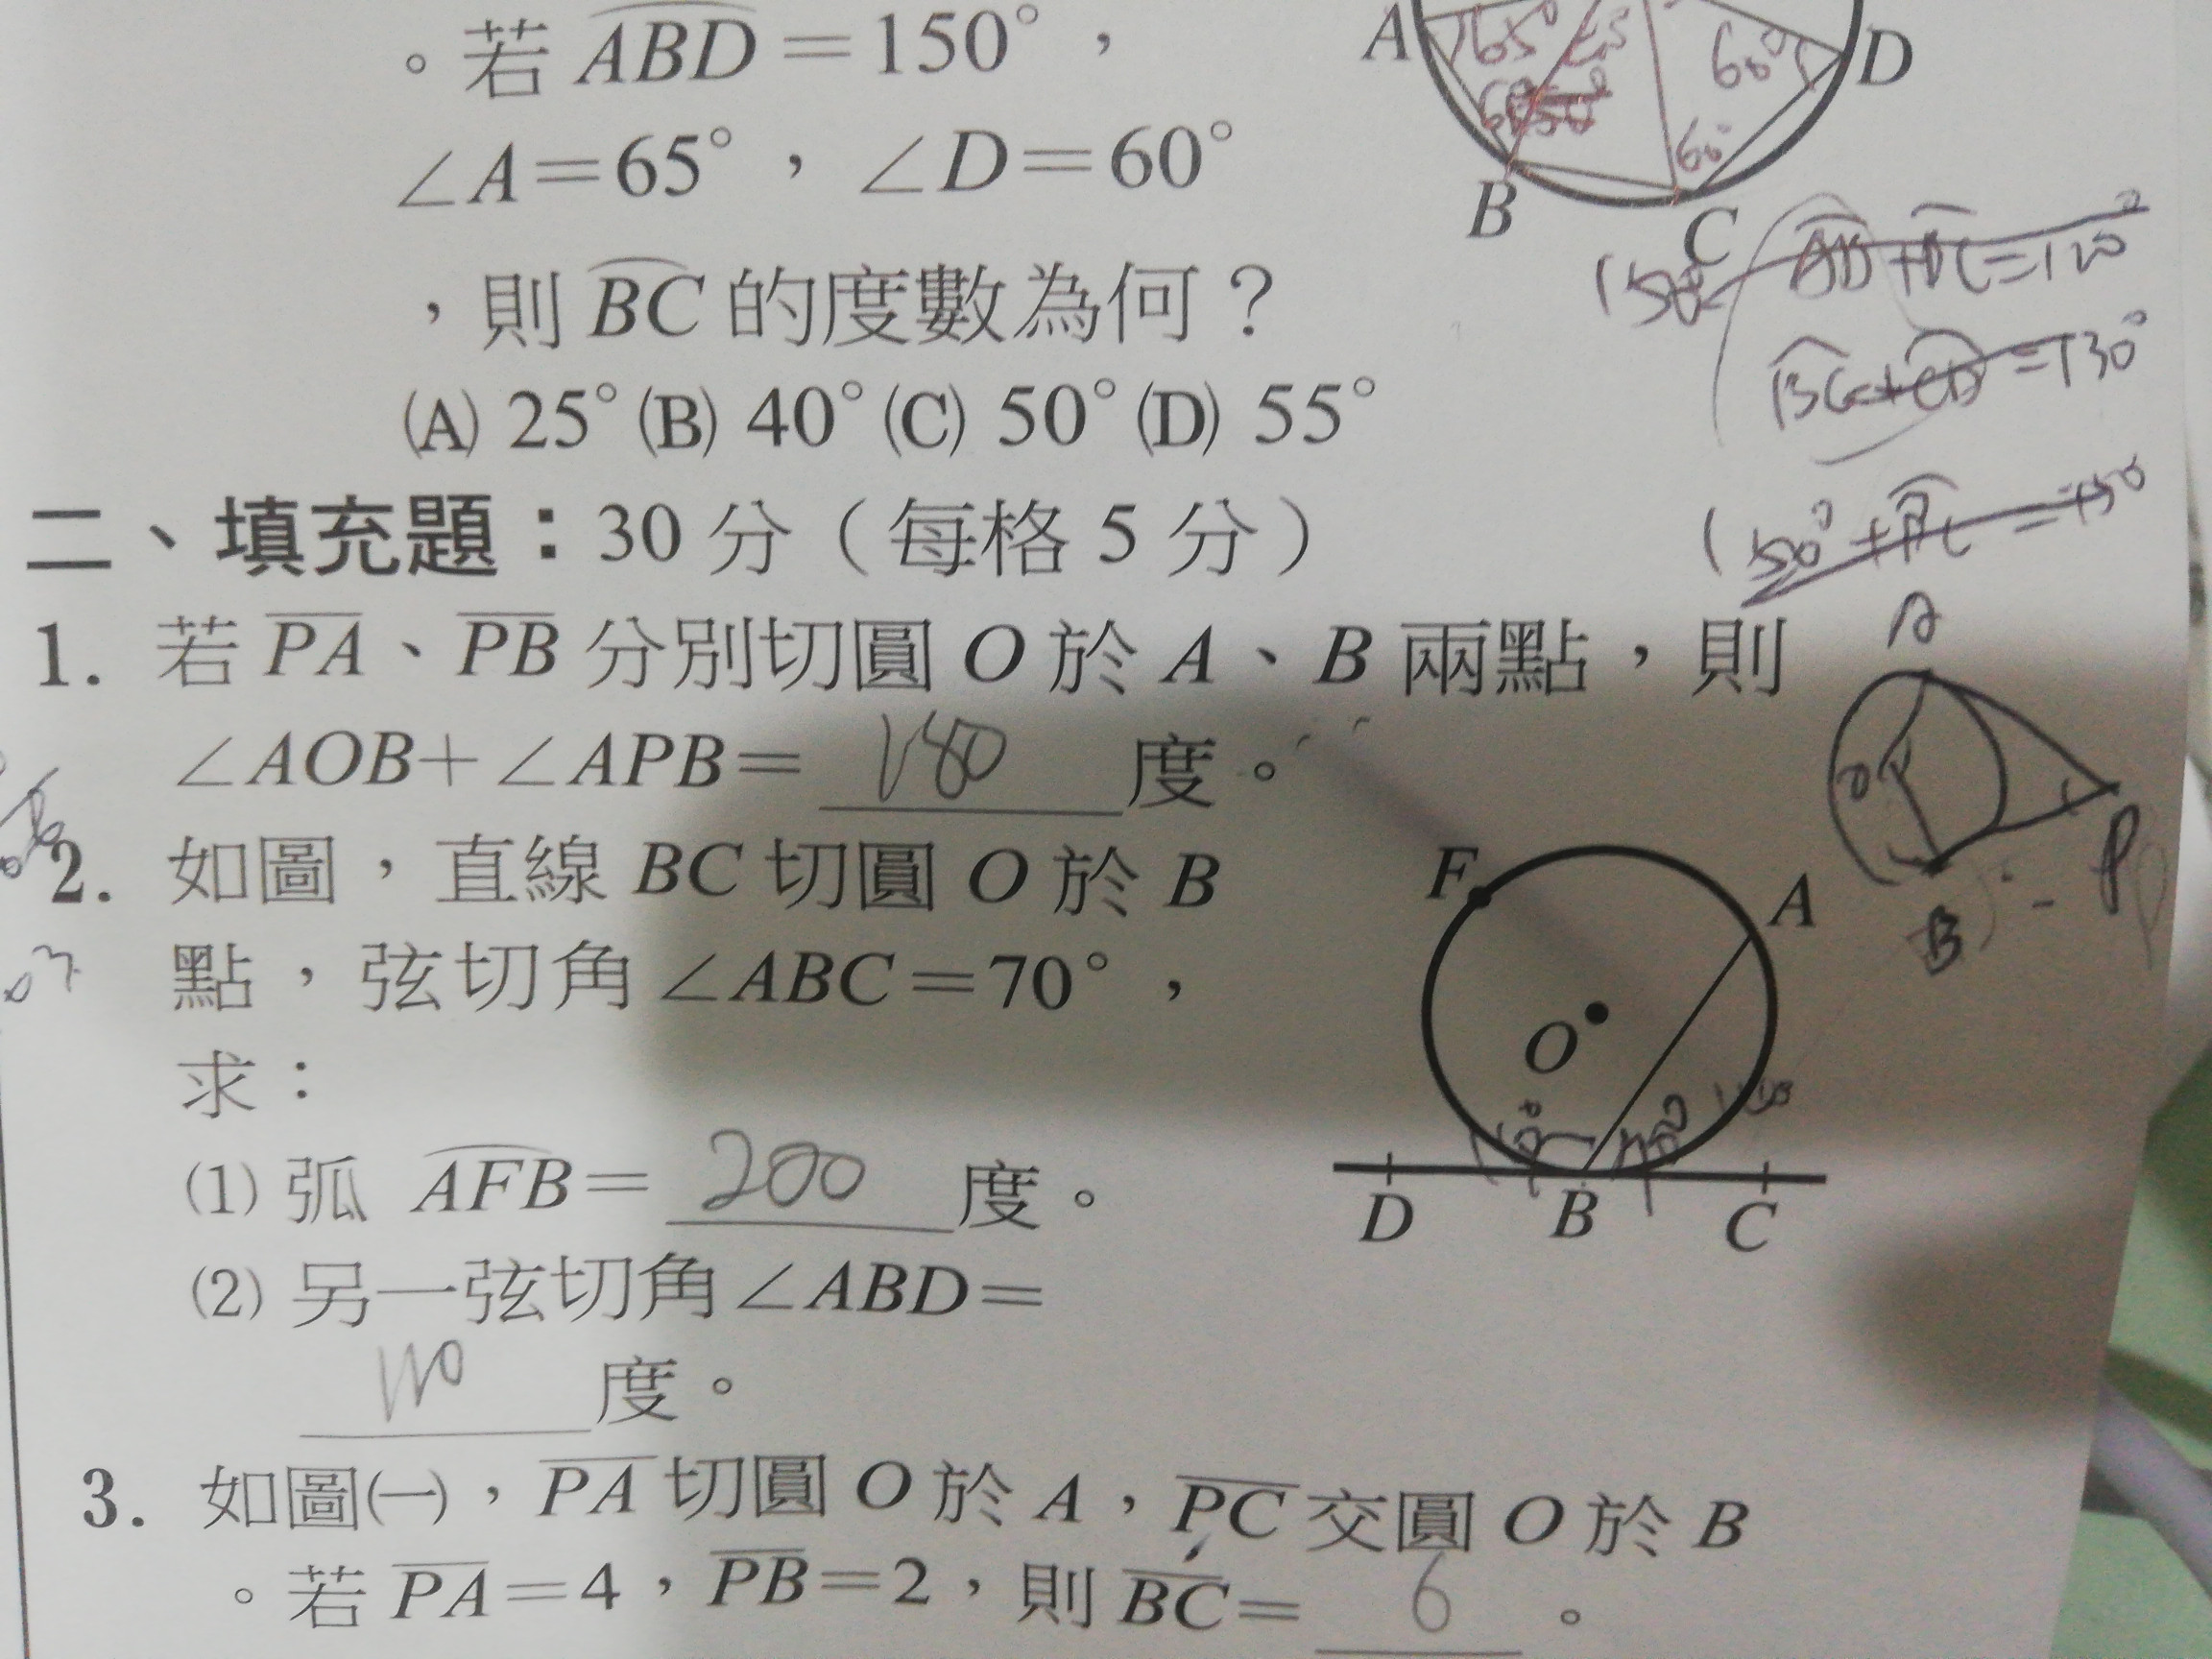 。若 ABD=150°，
∠A=65°，∠D=60°
，則 BC 的度數為何？
(A) 25° (B) 40° (C) 50° (D) 55°
A 65° 60° D
60°
B C
AD+DC=120°
BC+CD=130°
二、填充題：30 分（每格 5 分）
1. 若 PA、PB 分別切圓 O 於 A、B 兩點，則
∠AOB+∠APB= 180 度。
A
O
P
B
2. 如圖，直線 BC 切圓 O 於 B
點，弦切角 ∠ABC=70°，
求：
(1) 弧 AFB= 200 度。
(2) 另一弦切角 ∠ABD=
110 度。
F A
O
D B C
3. 如圖(一)，PA 切圓 O 於 A，PC 交圓 O 於 B
。若 PA=4，PB=2，則 BC= 6 。